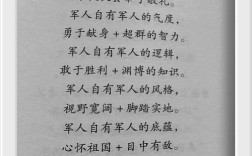 军人自有军人的气度，
勇于献身+超群的智力。
军人自有军人的逻辑，
敢于胜利+渊博的知识。
军人自有军人的风格，
视野宽阔+脚踏实地。
军人自有军人的底蕴，
心怀祖国+目中有敌。